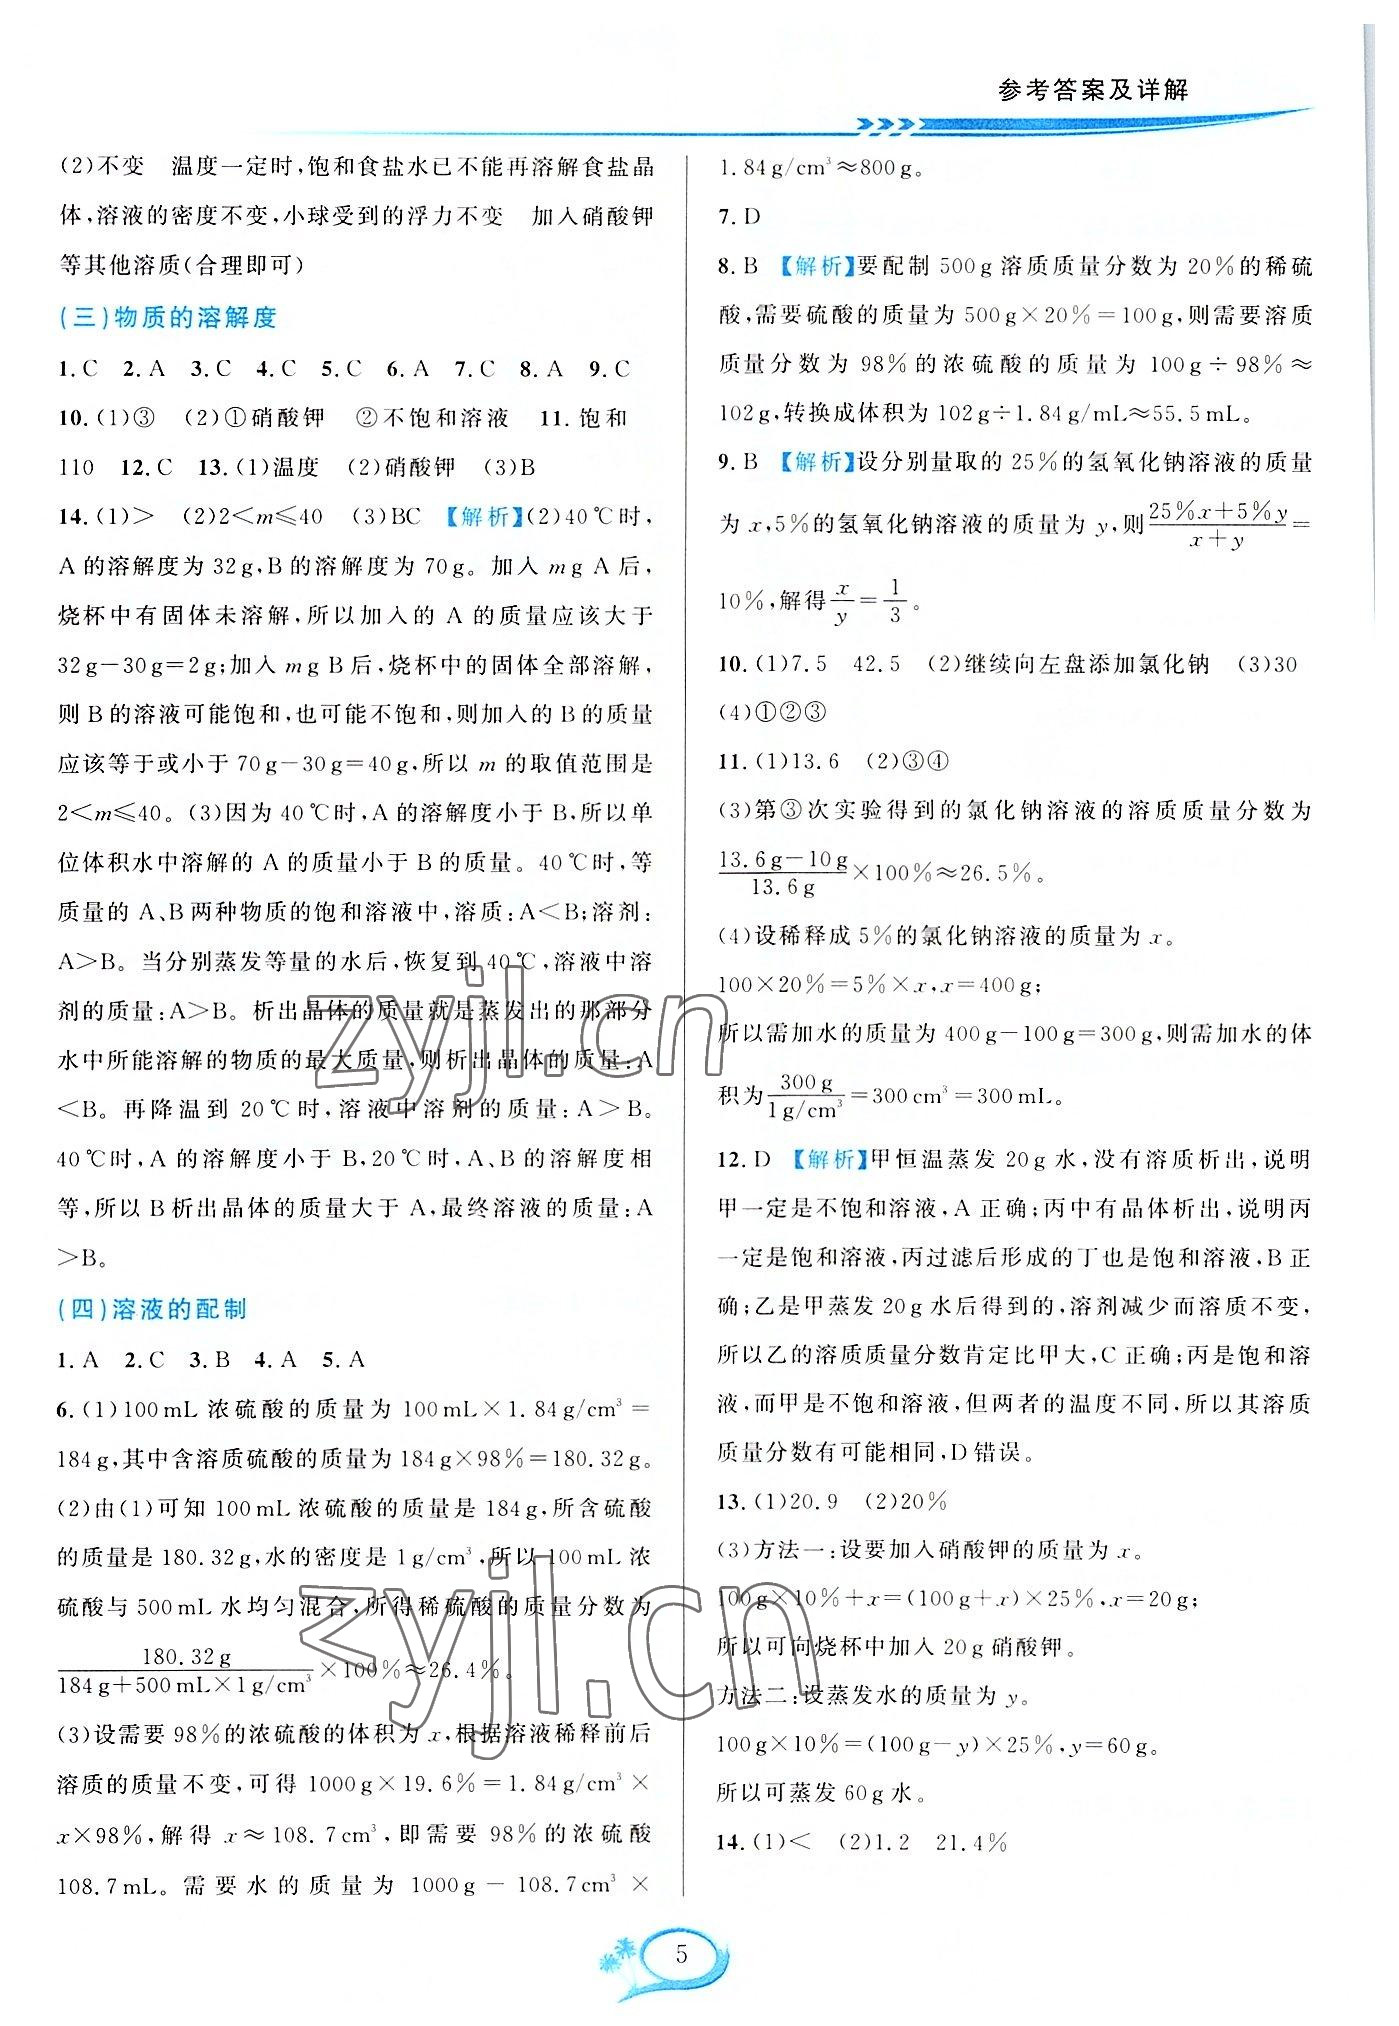 参考答案及详解
(2)不变　温度一定时,饱和食盐水已不能再溶解食盐晶
体,溶液的密度不变,小球受到的浮力不变　加入硝酸钾
等其他溶质(合理即可)
(三)物质的溶解度
1.C　2.A　3.C　4.C　5.C　6.A　7.C　8.A　9.C
10.(1)③　(2)①硝酸钾　②不饱和溶液　11.饱和
110　12.C　13.(1)温度　(2)硝酸钾　(3)B
14.(1)>　(2)2<m≤40　(3)BC　【解析】(2)40℃时,
A的溶解度为32g,B的溶解度为70g。加入mgA后,
烧杯中有固体未溶解,所以加入的A的质量应该大于
32g-30g=2g;加入mgB后,烧杯中的固体全部溶解,
则B的溶液可能饱和,也可能不饱和,则加入的B的质量
应该等于或小于70g-30g=40g,所以m的取值范围是
2<m≤40。(3)因为40℃时,A的溶解度小于B,所以单
位体积水中溶解的A的质量小于B的质量。40℃时,等
质量的A、B两种物质的饱和溶液中,溶质:A<B;溶剂:
A>B。当分别蒸发等量的水后,恢复到40℃,溶液中溶
剂的质量:A>B。析出晶体的质量就是蒸发出的那部分
水中所能溶解的物质的最大质量,则析出晶体的质量:A
<B。再降温到20℃时,溶液中溶剂的质量:A>B。
40℃时,A的溶解度小于B,20℃时,A、B的溶解度相
等,所以B析出晶体的质量大于A,最终溶液的质量:A
>B。
(四)溶液的配制
1.A　2.C　3.B　4.A　5.A
6.(1)100mL浓硫酸的质量为100mL×1.84g/cm³=
184g,其中含溶质硫酸的质量为184g×98%=180.32g。
(2)由(1)可知100mL浓硫酸的质量是184g,所含硫酸
的质量是180.32g,水的密度是1g/cm³,所以100mL浓
硫酸与500mL水均匀混合,所得稀硫酸的质量分数为
180.32g
184g+500mL×1g/cm³×100%≈26.4%。
(3)设需要98%的浓硫酸的体积为x,根据溶液稀释前后
溶质的质量不变,可得1000g×19.6%=1.84g/cm³×
x×98%,解得x≈108.7cm³,即需要98%的浓硫酸
108.7mL。需要水的质量为1000g-108.7cm³×
1.84g/cm³≈800g。
7.D
8.B　【解析】要配制500g溶质质量分数为20%的稀硫
酸,需要硫酸的质量为500g×20%=100g,则需要溶质
质量分数为98%的浓硫酸的质量为100g÷98%≈
102g,转换成体积为102g÷1.84g/mL≈55.5mL。
9.B　【解析】设分别量取的25%的氢氧化钠溶液的质量
为x,5%的氢氧化钠溶液的质量为y,则(25%x+5%y)/(x+y)=
10%,解得x/y=1/3。
10.(1)7.5　42.5　(2)继续向左盘添加氯化钠　(3)30
(4)①②③
11.(1)13.6　(2)③④
(3)第③次实验得到的氯化钠溶液的溶质质量分数为
13.6g-10g
13.6g×100%≈26.5%。
(4)设稀释成5%的氯化钠溶液的质量为x。
100×20%=5%×x,x=400g;
所以需加水的质量为400g-100g=300g,则需加水的体
积为300g/1g/cm³=300cm³=300mL。
12.D　【解析】甲恒温蒸发20g水,没有溶质析出,说明
甲一定是不饱和溶液,A正确;丙中有晶体析出,说明丙
一定是饱和溶液,丙过滤后形成的丁也是饱和溶液,B正
确;乙是甲蒸发20g水后得到的,溶剂减少而溶质不变,
所以乙的溶质质量分数肯定比甲大,C正确;丙是饱和溶
液,而甲是不饱和溶液,但两者的温度不同,所以其溶质
质量分数有可能相同,D错误。
13.(1)20.9　(2)20%
(3)方法一:设要加入硝酸钾的质量为x。
100g×10%+x=(100g+x)×25%,x=20g;
所以可向烧杯中加入20g硝酸钾。
方法二:设蒸发水的质量为y。
100g×10%=(100g-y)×25%,y=60g。
所以可蒸发60g水。
14.(1)<　(2)1.2　21.4%
zyjl.cn
zyjl.cn
5